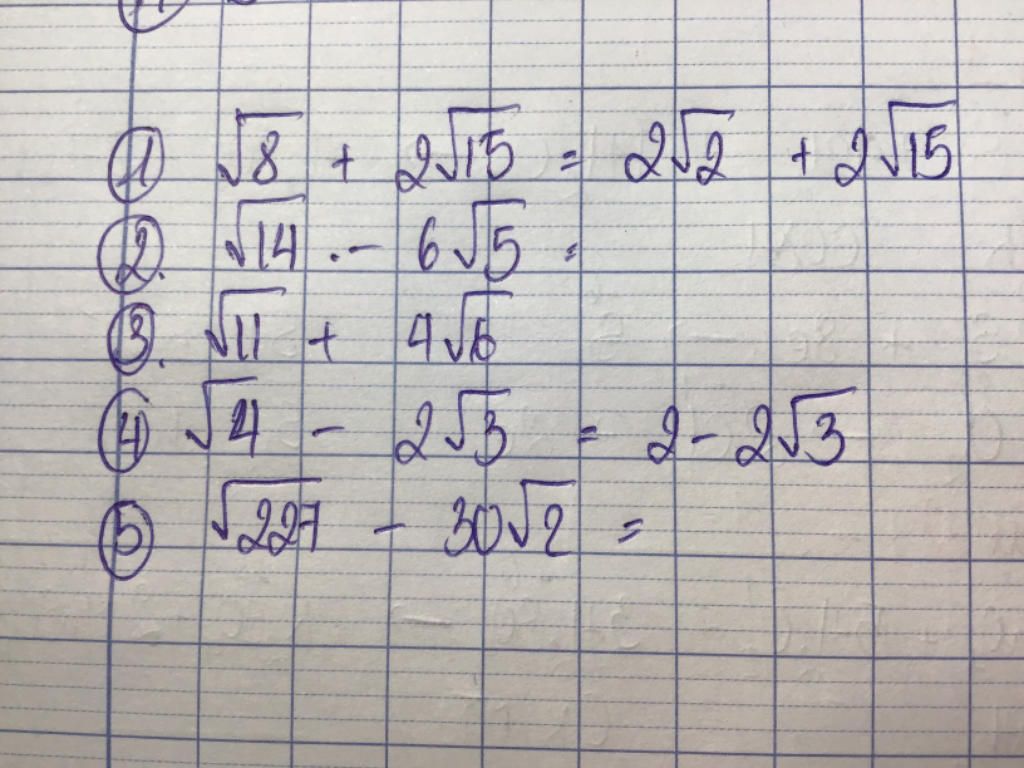 ① √8 + 2√15 = 2√2 + 2√15
②. √14 .- 6√5 =
③. √11 + 4√6
④ √4 - 2√3 = 2 - 2√3
⑤ √227 - 30√2 =